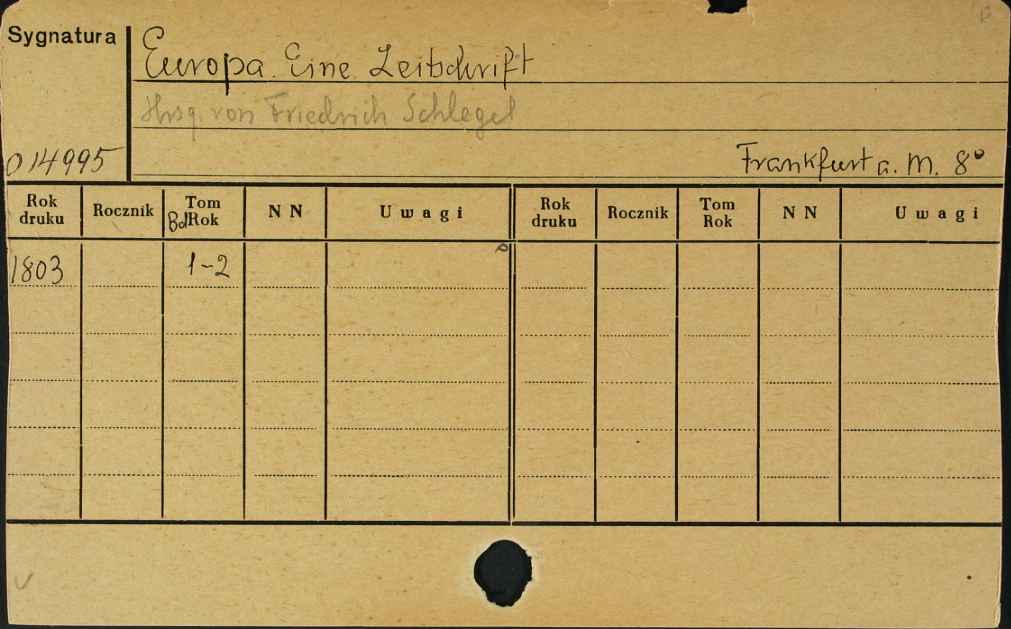 Sygnatura
Europa. Eine Zeitschrift
Hrsg. von Friedrich Schlegel
014995
Frankfurt a. M. 8°
Rok druku Rocznik Tom Rok Bd N N Uwagi Rok druku Rocznik Tom Rok N N Uwagi
1803 1-2